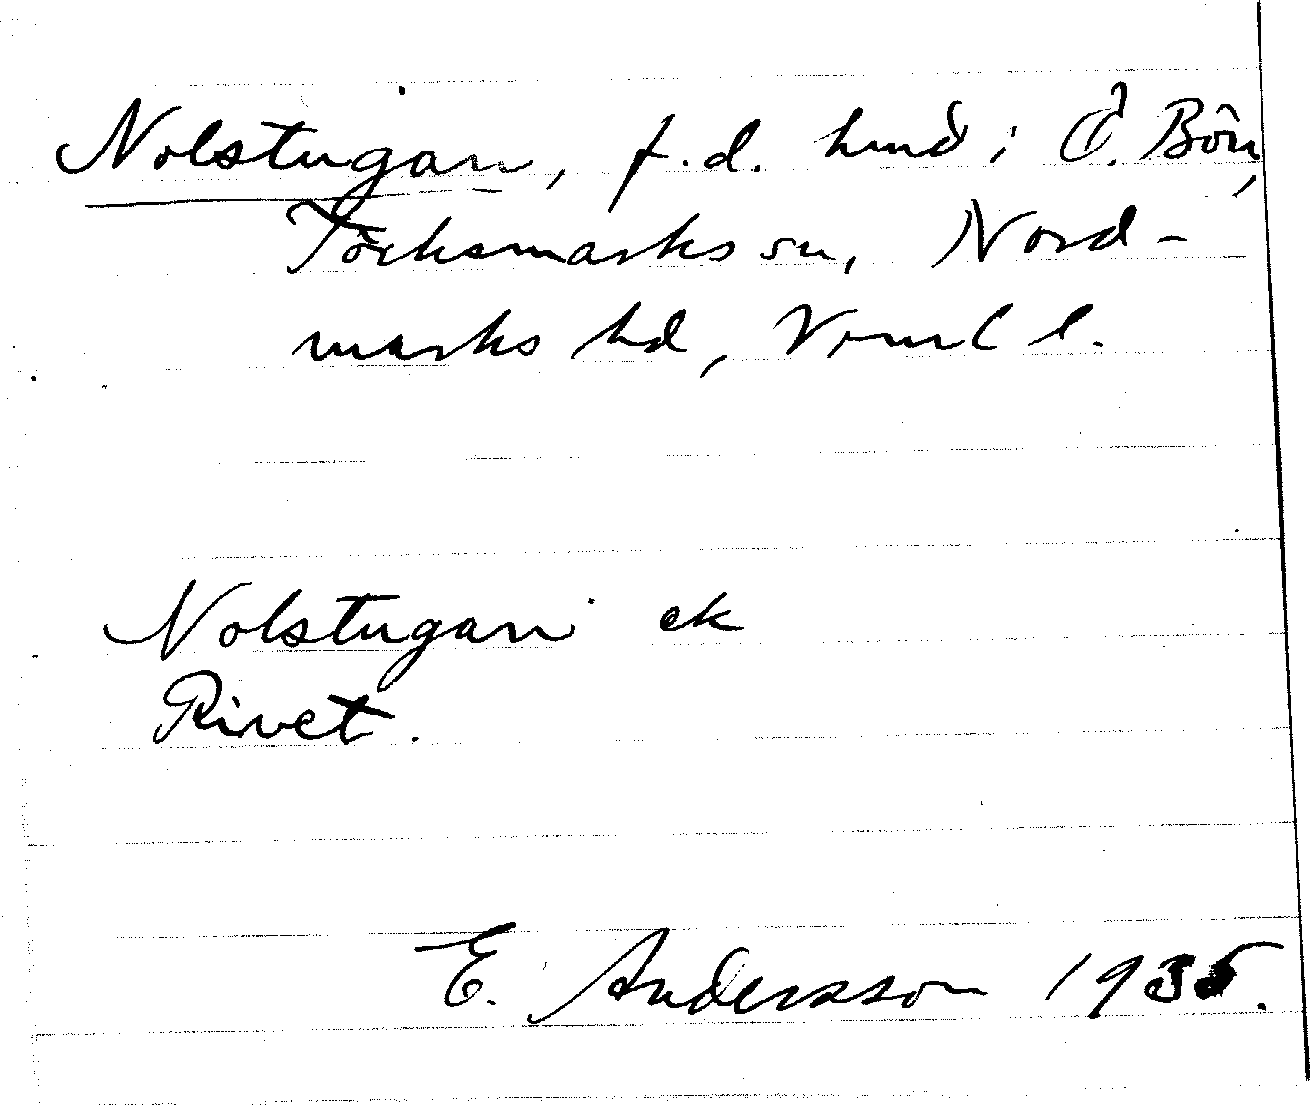 Nolstugan, f.d. hmd i Ö. Bön,
Töcksmarks sn, Nord-
marks hd, Vrml l.
Nolstugan ek
Rivet.
E. Andersson 1935.